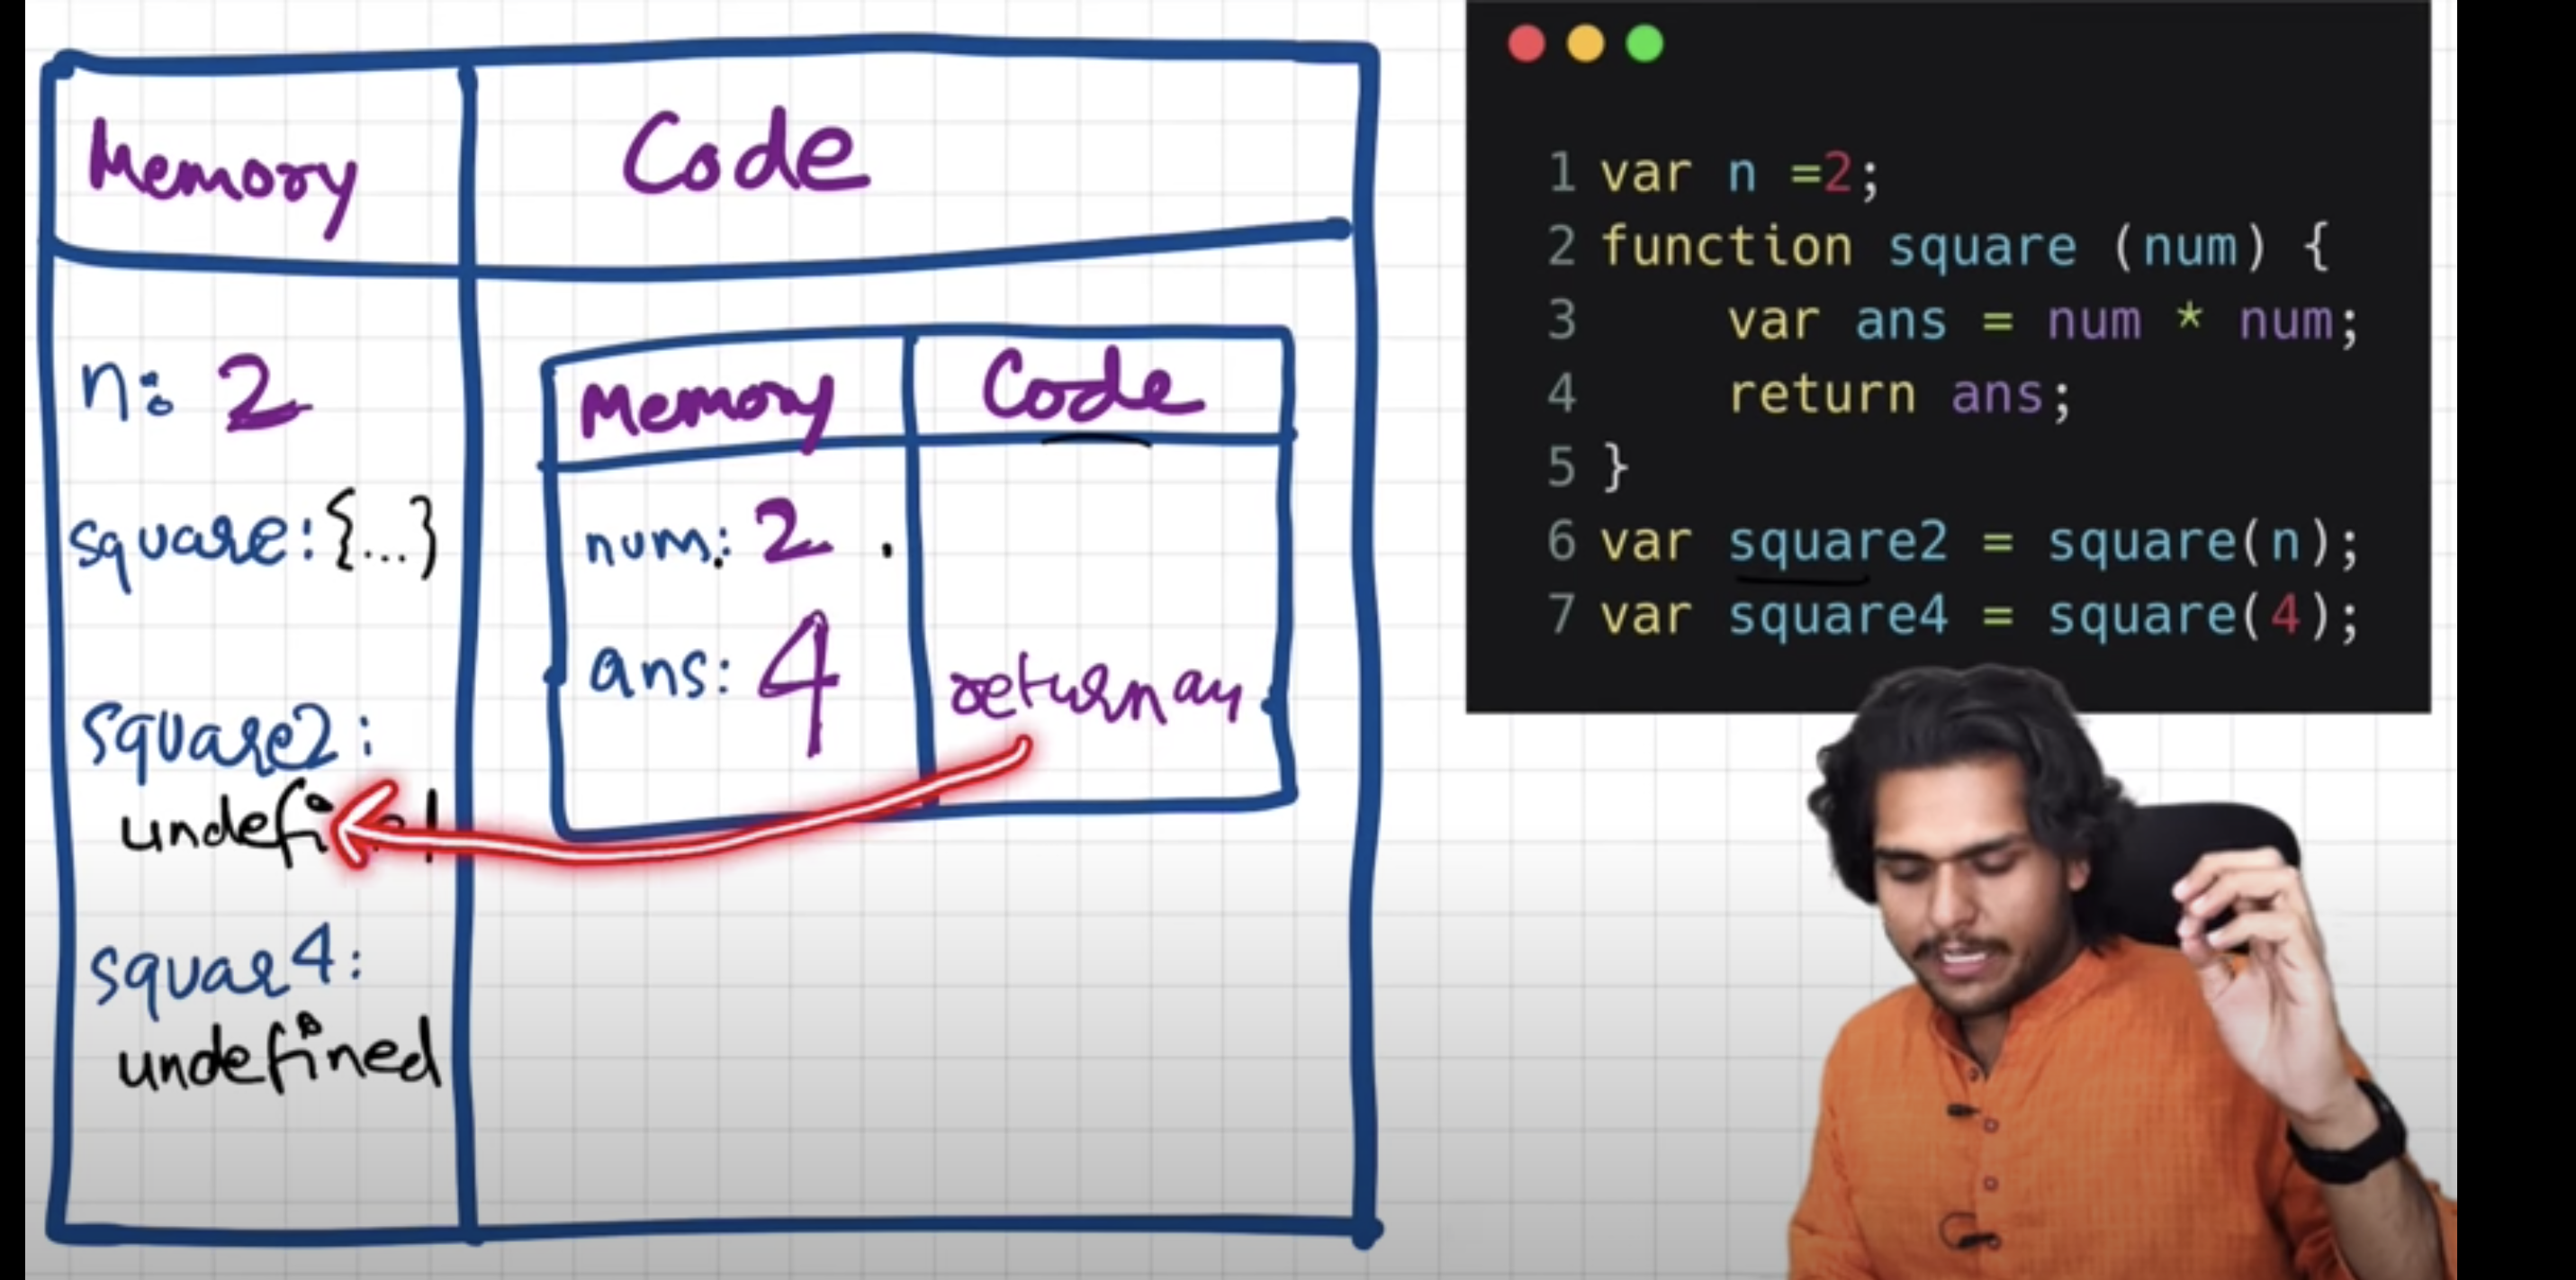 Memory
Code
n: 2
square: {...}
square2:
squar4:
undefined
Memory
Code
num: 2
ans: 4
return an
1 var n =2;
2 function square (num) {
3 var ans = num * num;
4 return ans;
5 }
6 var square2 = square(n);
7 var square4 = square(4);